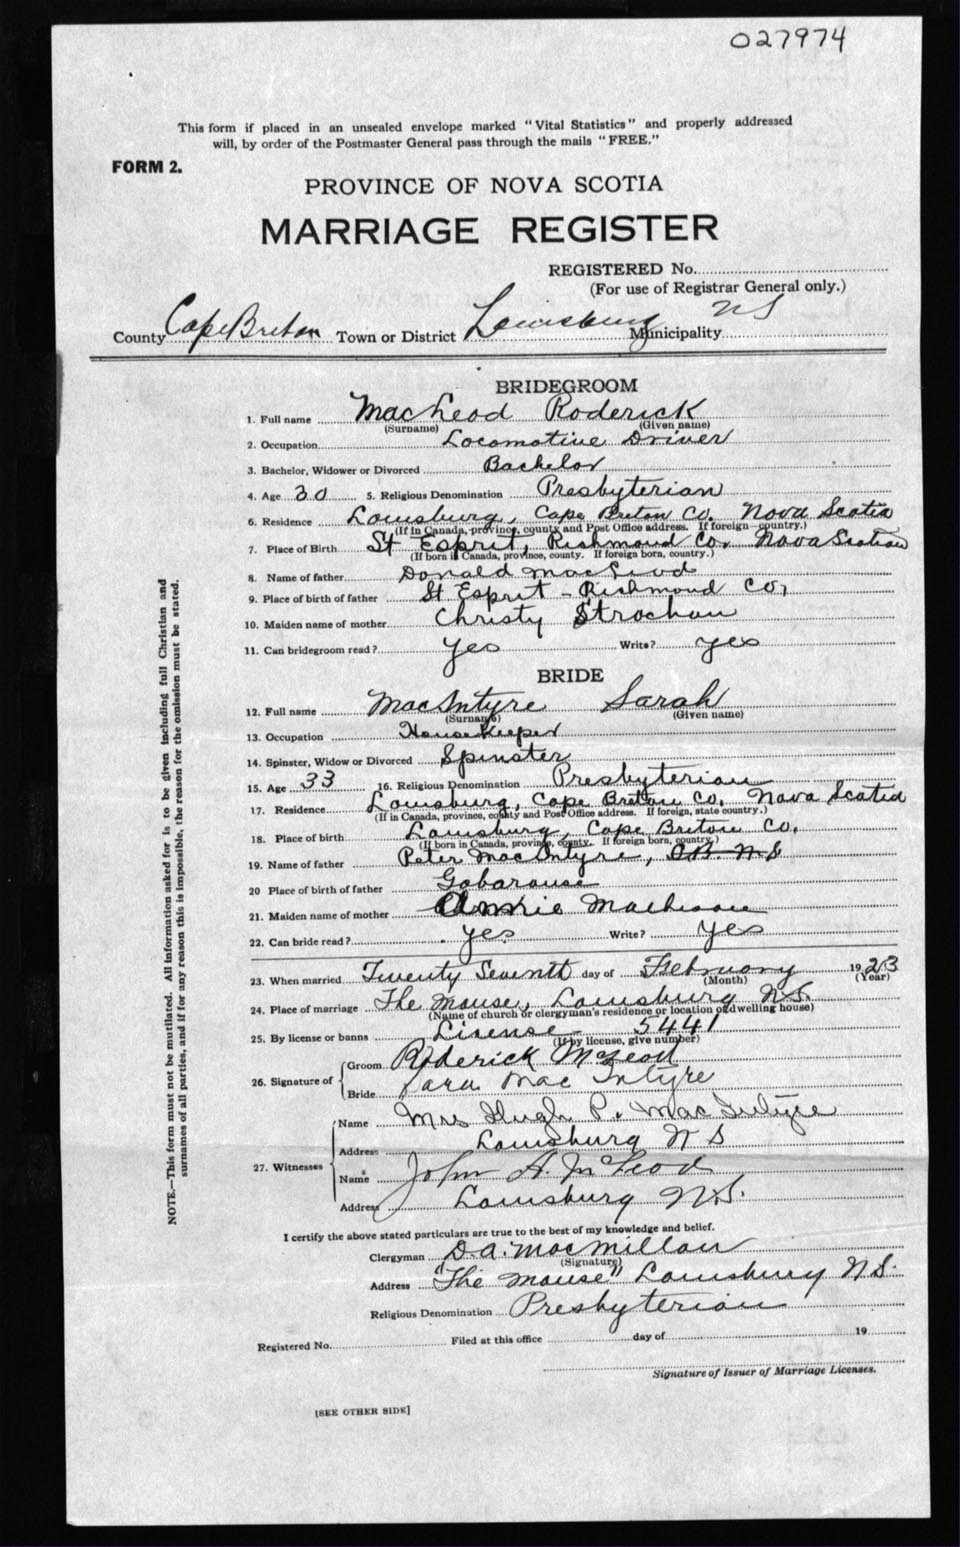 027974
This form if placed in an unsealed envelope marked "Vital Statistics" and properly addressed
will, by order of the Postmaster General pass through the mails "FREE."
FORM 2.
PROVINCE OF NOVA SCOTIA
MARRIAGE REGISTER
REGISTERED No.
(For use of Registrar General only.)
County Cape Breton Town or District Louisburg Municipality NS
BRIDEGROOM
1. Full name MacLeod Roderick
(Surname) (Given name)
2. Occupation Locomotive Driver
3. Bachelor, Widower or Divorced Bachelor
4. Age 30 5. Religious Denomination Presbyterian
6. Residence Louisburg, Cape Breton Co. Nova Scotia
(If in Canada, province, county and Post Office address. If foreign—country.)
7. Place of Birth St Esprit, Richmond Co. Nova Scotia
(If born in Canada, province, county. If foreign born, country.)
8. Name of father Donald MacLeod
9. Place of birth of father St Esprit - Richmond Co,
10. Maiden name of mother Christy Strachan
11. Can bridegroom read? Yes Write? yes
BRIDE
12. Full name MacIntyre Sarah
(Surname) (Given name)
13. Occupation Housekeeper
14. Spinster, Widow or Divorced Spinster
15. Age 33 16. Religious Denomination Presbyterian
17. Residence Louisburg, Cape Breton Co. Nova Scotia
(If in Canada, province, county and Post Office address. If foreign, state country.)
18. Place of birth Louisburg, Cape Breton Co.
(If born in Canada, province, county. If foreign born, country.)
19. Name of father Peter MacIntyre, C.B. N S
20 Place of birth of father Gabarouse
21. Maiden name of mother Annie
22. Can bride read? yes Write? yes
23. When married Twenty Seventh day of February 1923
(Month) (Year)
24. Place of marriage The Manse, Louisburg N.S.
(Name of church or clergyman's residence or location of dwelling house)
25. By license or banns License 5441
(If by license, give number)
26. Signature of Groom Roderick McLeod
Bride Sara Mac Intyre
27. Witnesses Name Mrs Hugh P. MacIntyre
Address Louisburg N S
Name John A. McLeod
Address Louisburg N.S.
I certify the above stated particulars are true to the best of my knowledge and belief.
Clergyman D.A. MacMillan
(Signature)
Address "The Manse" Louisburg N.S.
Religious Denomination Presbyterian
Registered No. Filed at this office day of 19
Signature of Issuer of Marriage Licenses.
[SEE OTHER SIDE]
NOTE.—This form must not be mutilated. All information asked for is to be given including full Christian and
surnames of all parties, and if for any reason this is impossible, the reason for the omission must be stated.